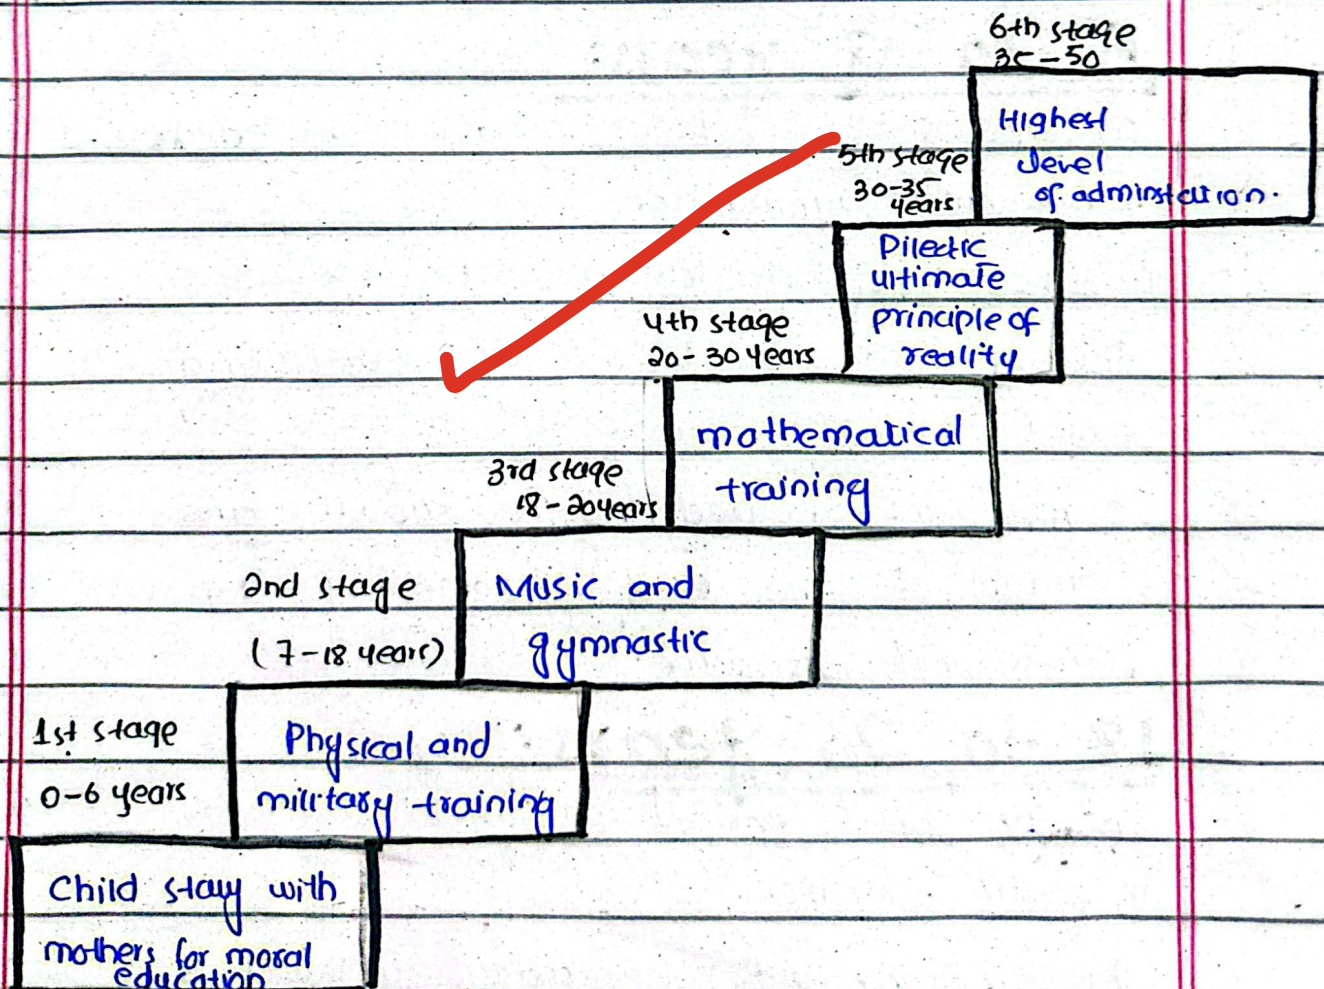 6th stage
35-50
Highest
level
of adminstation.
5th stage
30-35
years
Dilectic
ultimate
principle of
reality
4th stage
20-30 years
mathematical
training
3rd stage
18-20 years
Music and
gymnastic
2nd stage
(7-18 years)
Physical and
military training
1st stage
0-6 years
Child stay with
mothers for moral
education